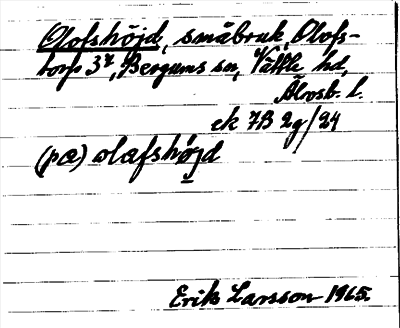 Olofshöjd, småbruk, Olofs-
torp 3⁷, Bergums sn, Vättle hd,
Älvsb. l.
ek 7B 2g/24
(pœ) ωlafshöjd
Erik Larsson 1965.